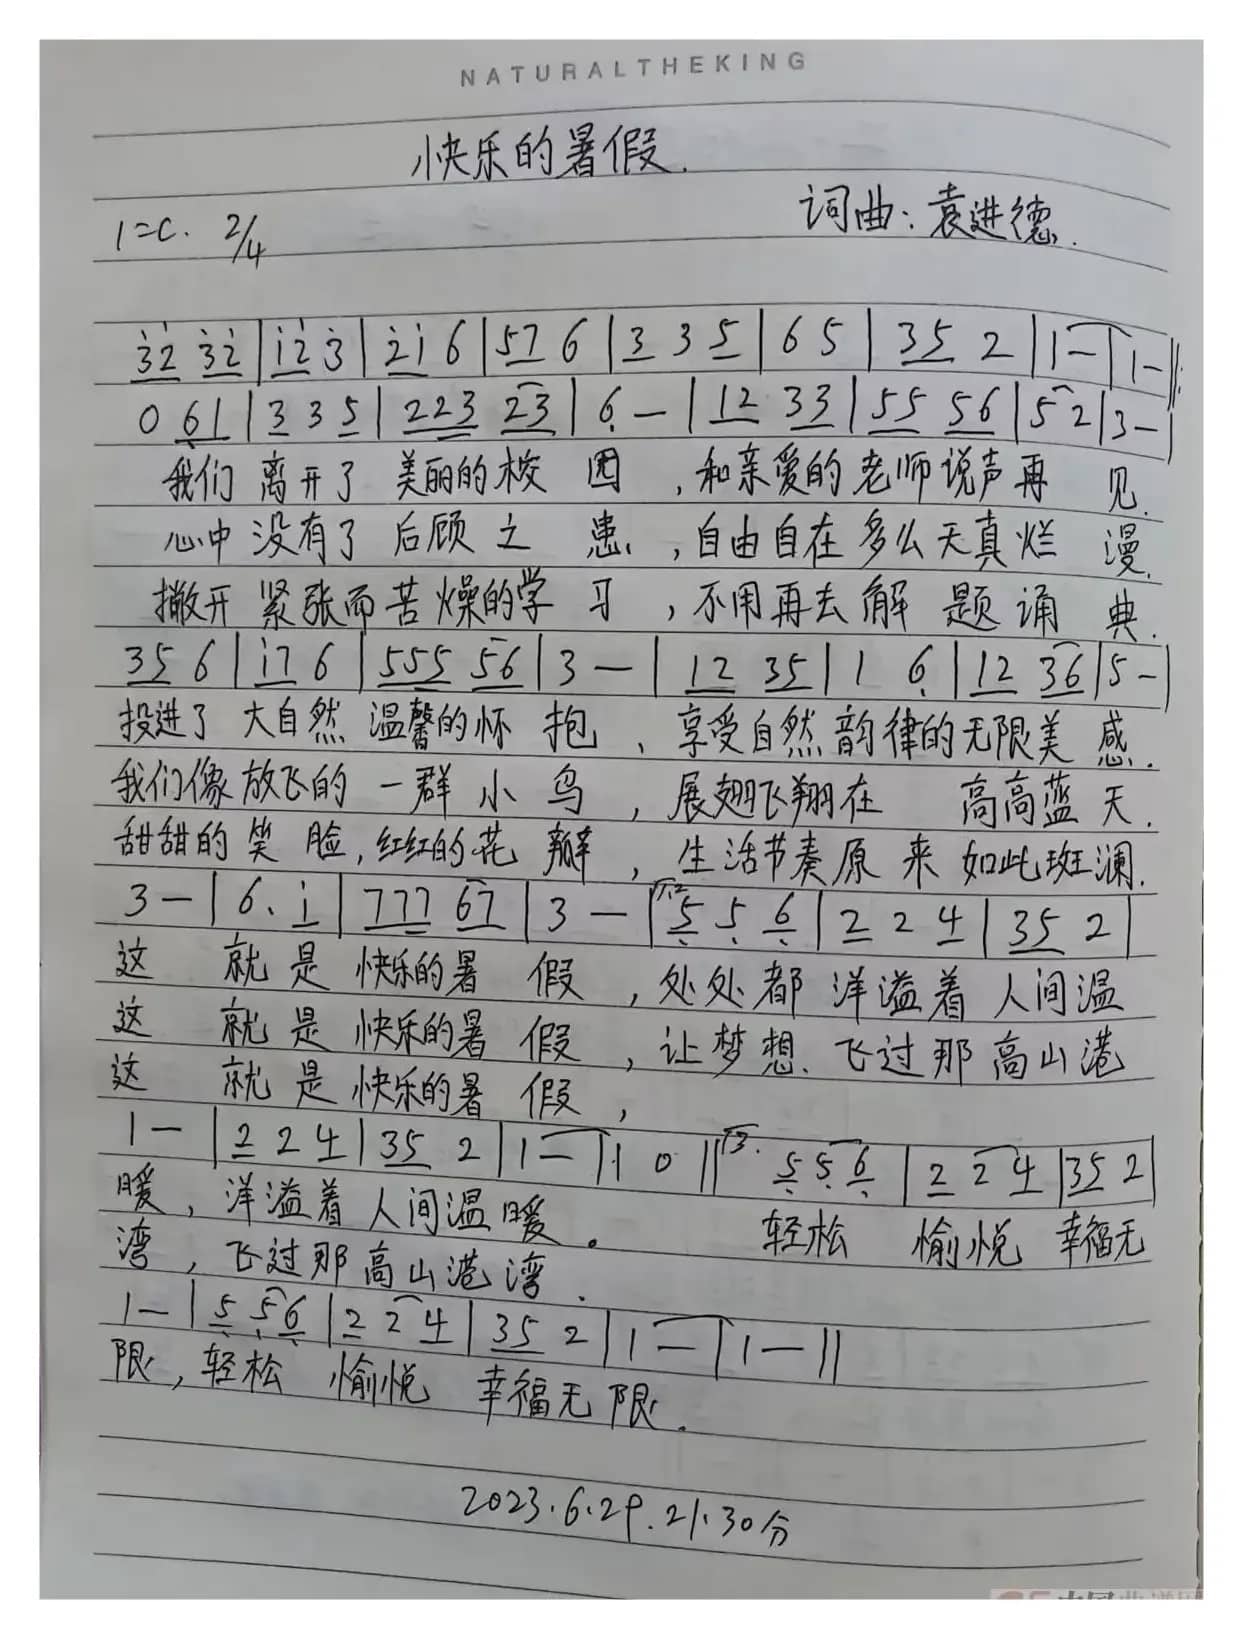 NATURALTHEKING
快乐的暑假.
1=C. 2/4 词曲:袁进德.
3̇2̇ 3̇2̇ | 1̇2̇ 3̇ | 2̇1̇ 6 | 57 6 | 3 3 5 | 6 5 | 35 2 | 1 — | 1 — :||
0 61 | 3 3 5 | 223 23 | 6 — | 12 33 | 55 56 | 5 2 | 3 — |
我们 离开了 美丽的校 园 ,和亲爱的老师说声再 见.
心中没有了 后顾之 患 ,自由自在多么天真烂 漫.
撇开 紧张而苦燥的学 习 ,不用再去解 题诵 典.
35 6 | 1̇7 6 | 555 56 | 3 — | 12 35 | 1 6 | 12 36 | 5 — |
投进了 大自然 温馨的怀 抱 、享受自然韵律的无限美 感.
我们像放飞的 一群小 鸟 ,展翅飞翔在 高高蓝 天.
甜甜的笑 脸,红红的花 瓣 ,生活节奏原 来如此斑斓.
3 — | 6. 1̇ | 777 67 | 3 — | 1.2 5 5 6 | 2 2 4 | 35 2 |
这 就是 快乐的暑 假 ,处处都 洋溢着 人间温
这 就是 快乐的暑 假 ,让梦想. 飞过那高山港
这 就是 快乐的暑 假 ,
1 — | 2 2 4 | 35 2 | 1 — | 1 0 || 3. 5 5 6 | 2 2 4 | 35 2 |
暖,洋溢着 人间温暖。 轻松 愉悦 幸福无
湾,飞过那高山港湾.
1 — | 5 5 6 | 2 2 4 | 35 2 | 1 — | 1 — ||
限,轻松 愉悦 幸福无限.
2023.6.29.21.30分